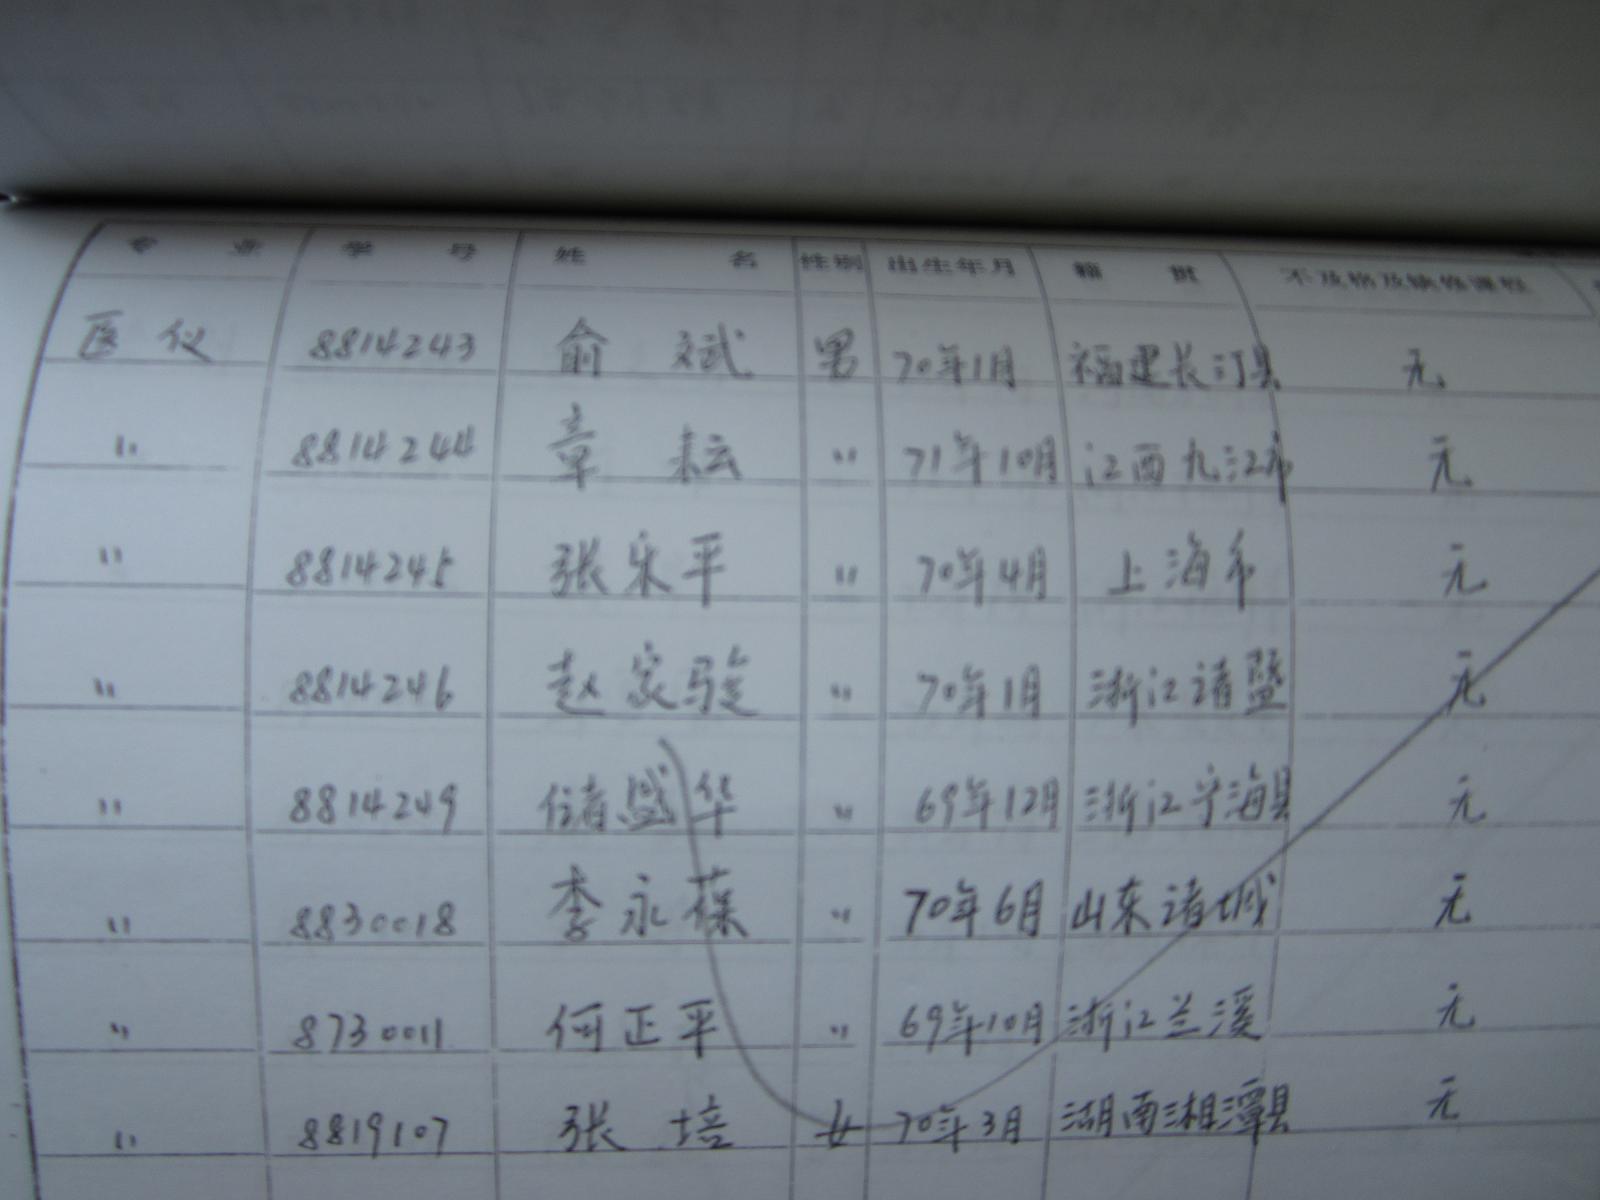 专 业 学 号 姓 名 性别 出生年月 籍 贯 不及格及缺修课程
医仪 8814243 俞斌 男 70年1月 福建长汀县 无
〃 8814244 章耘 〃 71年10月 江西九江市 无
〃 8814245 张乐平 〃 70年4月 上海市 无
〃 8814246 赵家骏 〃 70年1月 浙江诸暨 无
〃 8814249 储盛华 〃 69年12月 浙江宁海县 无
〃 8830018 李永葆 〃 70年6月 山东诸城 无
〃 8730011 何正平 〃 69年10月 浙江兰溪 无
〃 8819107 张培 女 70年3月 湖南湘潭县 无